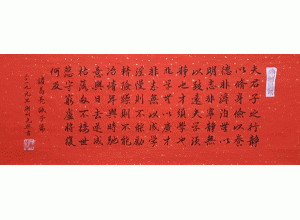 夫君子之行靜
以修身儉以養
德非澹泊無以
明志非寧靜無
以致遠夫學須
靜也才須學也
非學無以廣才
非志無以成學
淫慢則不能勵
精險躁則不能
冶性年與時馳
意與日去遂成
枯落多不接世
悲守窮廬將復
何及
諸葛亮誡子篇